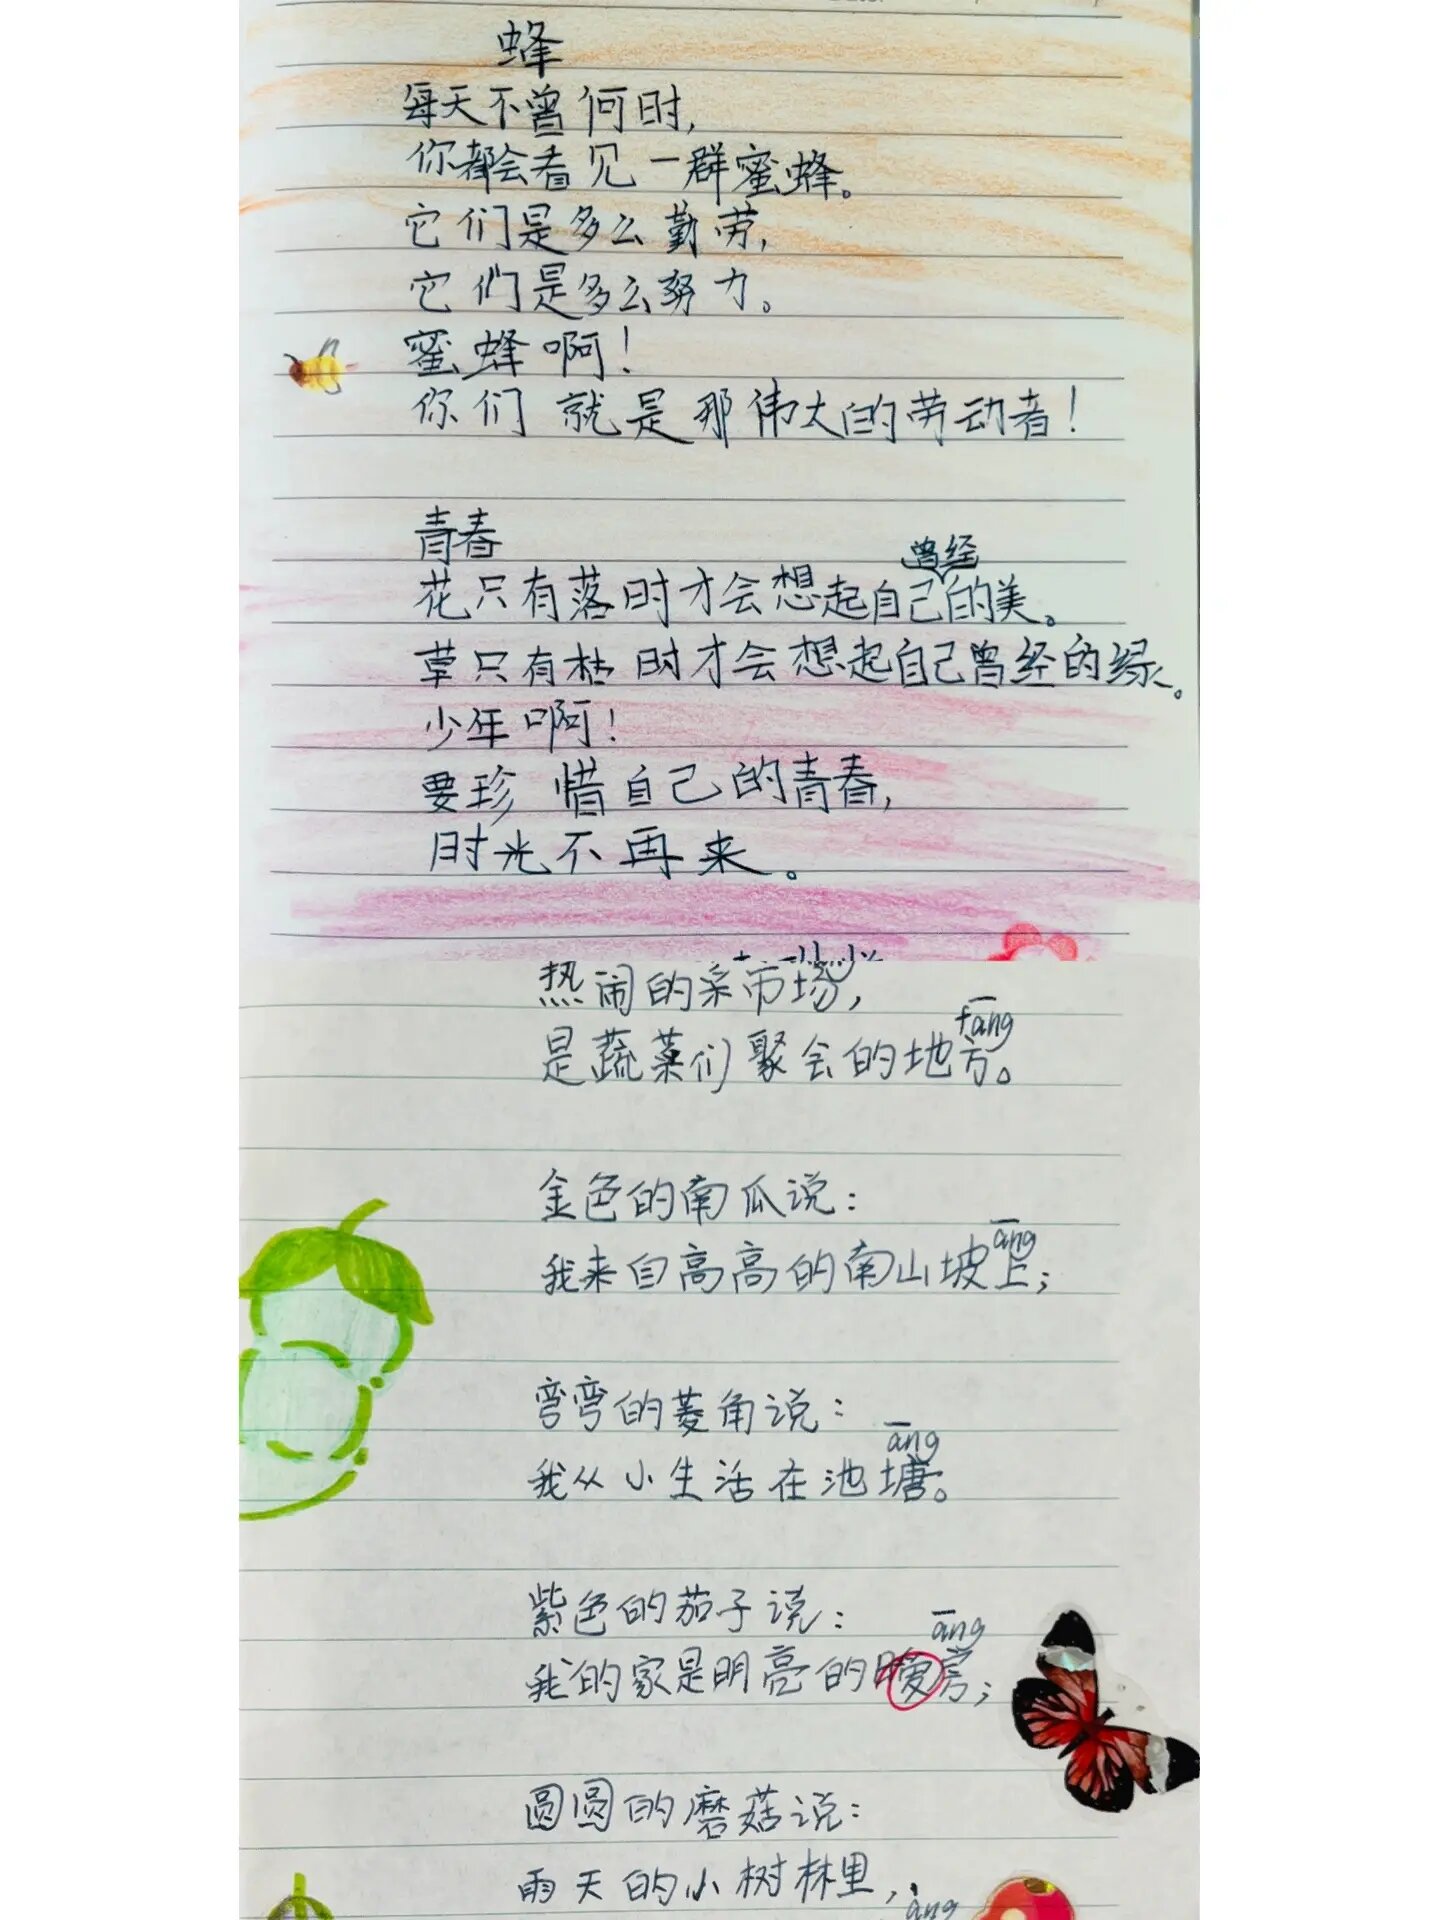 蜂
每天不曾何时,
你都会看见一群蜜蜂。
它们是多么勤劳,
它们是多么努力。
蜜蜂啊!
你们就是那伟大的劳动者!
青春
花只有落时才会想起自己曾经的美。
草只有枯时才会想起自己曾经的绿。
少年啊!
要珍惜自己的青春,
时光不再来。
热闹的菜市场,
fāng
是蔬菜们聚会的地方。
金色的南瓜说:
āng
我来自高高的南山坡上;
弯弯的菱角说:
āng
我从小生活在池塘。
紫色的茄子说:
āng
我的家是明亮的暖房;
圆圆的磨菇说:
雨天的小树林里,
āng